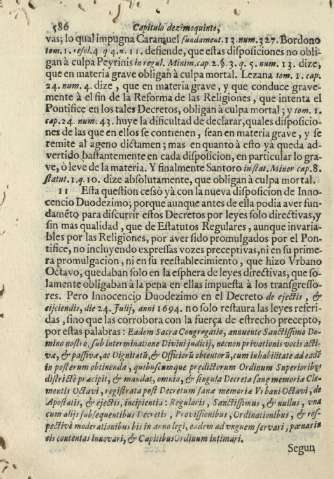 586 Capitulo dezimoquinto,
vas; lo qual impugna Caramuel fundament. 13. num. 327. Bordono
tom. 1. resol. 4 q 4. n. 11. defiende, que estas disposiciones no obli-
gan à culpa Peyrinis in regul. Minim. cap 2. §. 3. q. 5. num. 13. dize,
que en materia grave obligan à culpa mortal. Lezana tom. 1. cap.
24. num. 4. dize, que en materia grave, y que conduce grave-
mente à el fin de la Reforma de las Religiones, que intenta el
Pontifice en los tales Decretos, obligan à culpa mortal; y tom. 1.
cap. 24. num. 43. huye la dificultad de declarar, quales disposicio-
nes de las que en ellos se contienen, sean en materia grave, y se
remite al ageno dictamen; mas en quanto à esto yà queda ad-
vertido bastantemente en cada disposicion, en particular lo gra-
ve, ò leve de la materia. Y finalmente Santoro in stat. Minor cap. 8.
statut. 14. 10. dize absolutamente, que obligan à culpa mortal.
11 Esta question cessò yà con la nueva disposicion de Inno-
cencio Duodezimo; porque aunque antes de ella podia aver fun-
damẽto para discurrir estos Decretos por leyes solo directivas, y
sin mas qualidad, que de Estatutos Regulares, aunque invaria-
bles por las Religiones, por aver sido promulgados por el Pon-
tifice, no incluyendo expressas vozes preceptivas, ni en su prime-
ra promulgacion, ni en su reestablecimiento, que hizo Vrbano
Octavo, quedaban solo en la esphera de leyes directivas, que so-
lamente obligaban à la pena en ellas impuesta à los transgresso-
res. Pero Innocencio Duodezimo en el Decreto de ejectis, &
ejiciendis, die 24. Julij, anno 1694. no solo restaura las leyes referi-
das, sino que las corrobora con la fuerça de estrecho precepto,
por estas palabras: Eadem Sacra Congregatio, annuente Sanctissimo Do-
mino nostro, sub interminatione Divini judicij, necnon privationis vocis acti-
va, & passiva, ac Dignitatũ, & Officiorũ obtentorũ, cum inhabilitate ad ea dẽ
in posterum obtinenda, quibuscumque predictorum Ordinum Superioribus
districtè præcipit, & mandat, omnia, & singula Decreta sanæ memoria Cle-
mentis Octavi, registrata post Decretum sanæ memoria Vrbani Octavi, de
Apostatis, & ejectis, incipientia: Regularis, Sanctissimus, & nullus, vna
cum alijs subsequentibus Decretis, Provissionibus, Ordinationibus, & res-
pectivè moderationibus bis in anno legi, eadem ad vnguem servari, pœnas in
eis contentas Innovari, & Capitibus Ordinum intimari.
Segun